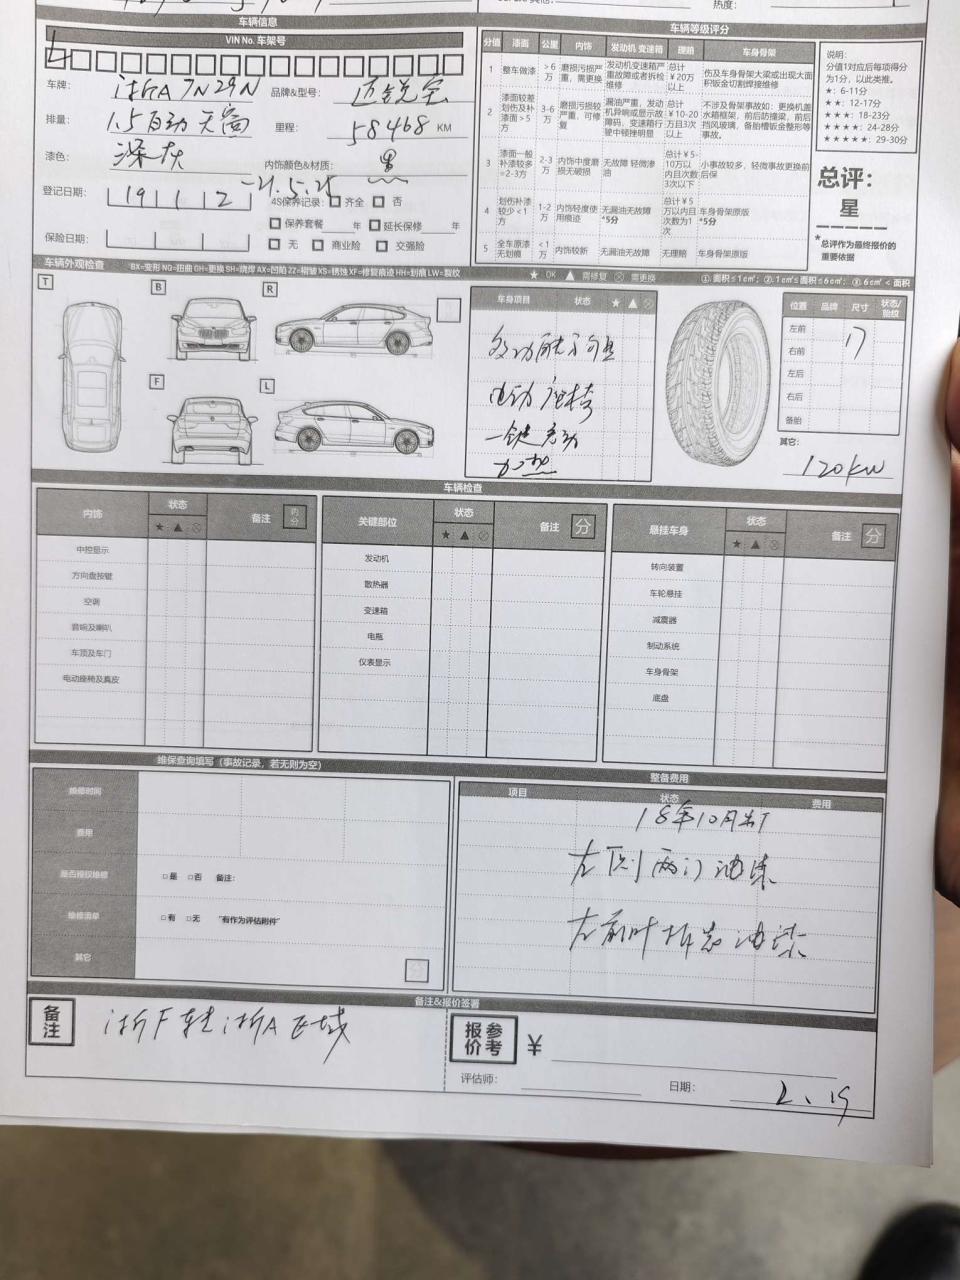 热度:
车辆信息
VIN No. 车架号
车牌: 浙A 7N29N 品牌&型号: 迈锐宝
排量: 1.5自动 天窗 里程: 58468 KM
漆色: 深灰 内饰颜色&材质: 黑
登记日期: 19 1 2 -21.5.25 4S保养记录: 齐全 否
保养套餐 年 延长保修 年
保险日期: 无 商业险 交强险
车辆等级评分
分值 漆面 公里 内饰 发动机 变速箱 理赔 车身骨架
1 整车做漆 >6万 磨损污损严重，需更换 发动机变速箱严重故障或者拆检维修 总计¥20万以上 伤及车身骨架大梁或出现大面积钣金切割焊接维修
2 漆面较差划伤及补漆面>5方 3-6万 磨损污损较严重，可修复 漏油严重，发动机异响或显示故障码，变速箱行驶中顿挫明显 总计¥10-20万或3次以上 不涉及骨架事故如：更换机盖水箱框架，前后防撞梁，前后挡风玻璃，备胎槽钣金整形等事故。
3 漆面一般补漆较多=2-3方 2-3万 内饰中度磨损无破损 无故障 轻微渗油 总计¥5-10万以内且次数3次以下 小事故较多，轻微事故更换前后保
4 划伤补漆较少<1方 1-2万 内饰轻度使用痕迹 无漏油无故障 *5分 总计¥5万以内且次数为1次 车身骨架原版 *5分
5 全车原漆无划痕 <1万 内饰较新 无漏油无故障 无理赔 车身骨架原版
说明:
分值1对应后每项得分为1分，以此类推。
★: 6-11分
★★: 12-17分
★★★: 18-23分
★★★★: 24-28分
★★★★★: 29-30分
总评:
星
*总评作为最终报价的重要依据
车辆外观检查 BX=变形 NQ=扭曲 GH=更换 SH=烧焊 AX=凹陷 ZZ=褶皱 XS=锈蚀 XF=修复痕迹 HH=划痕 LW=裂纹 ★ OK ▲ 需修复 ⊗ 需更换 ①.面积≤1c㎡; ②.1c㎡≤面积≤6c㎡; ③.6c㎡<面积
T B R
F L
车身项目 状态 ★ ▲ ⊗
多功能方向盘
电动座椅
一键启动
加热
位置 品牌 尺寸 状态/胎纹
左前
右前 17
左后
右后
备胎
其它: 120kw
车辆检查
内饰 状态 备注 内分
★ ▲ ⊗
中控显示
方向盘按键
空调
音响及喇叭
车顶及车门
电动座椅及真皮
关键部位 状态 备注 分
★ ▲ ⊗
发动机
散热器
变速箱
电瓶
仪表显示
悬挂车身 状态 备注 分
★ ▲ ⊗
转向装置
车轮悬挂
减震器
制动系统
车身骨架
底盘
维保查询填写（事故记录，若无则为空）
维修时间
费用
是否授权维修 □是 □否 备注:
维修清单 □有 □无 "有作为评估附件"
其它 分
整备费用
项目 状态 费用
18年10月出厂
左侧两门油漆
左前叶拆装油漆
备注&报价签署
备注 浙F转浙A区域
参考报价 ¥
评估师: 日期: 2、19